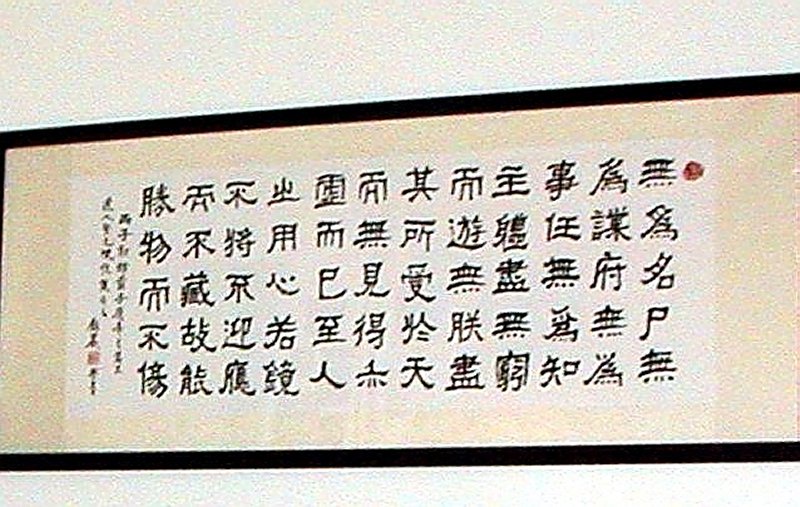 無為名尸無
為謀府無為
事任無為知
主軆盡無窮
而遊無朕盡
其所受於天
而無見得亦
虛而已至人
之用心若鏡
不將不迎應
而不藏故能
勝物而不傷